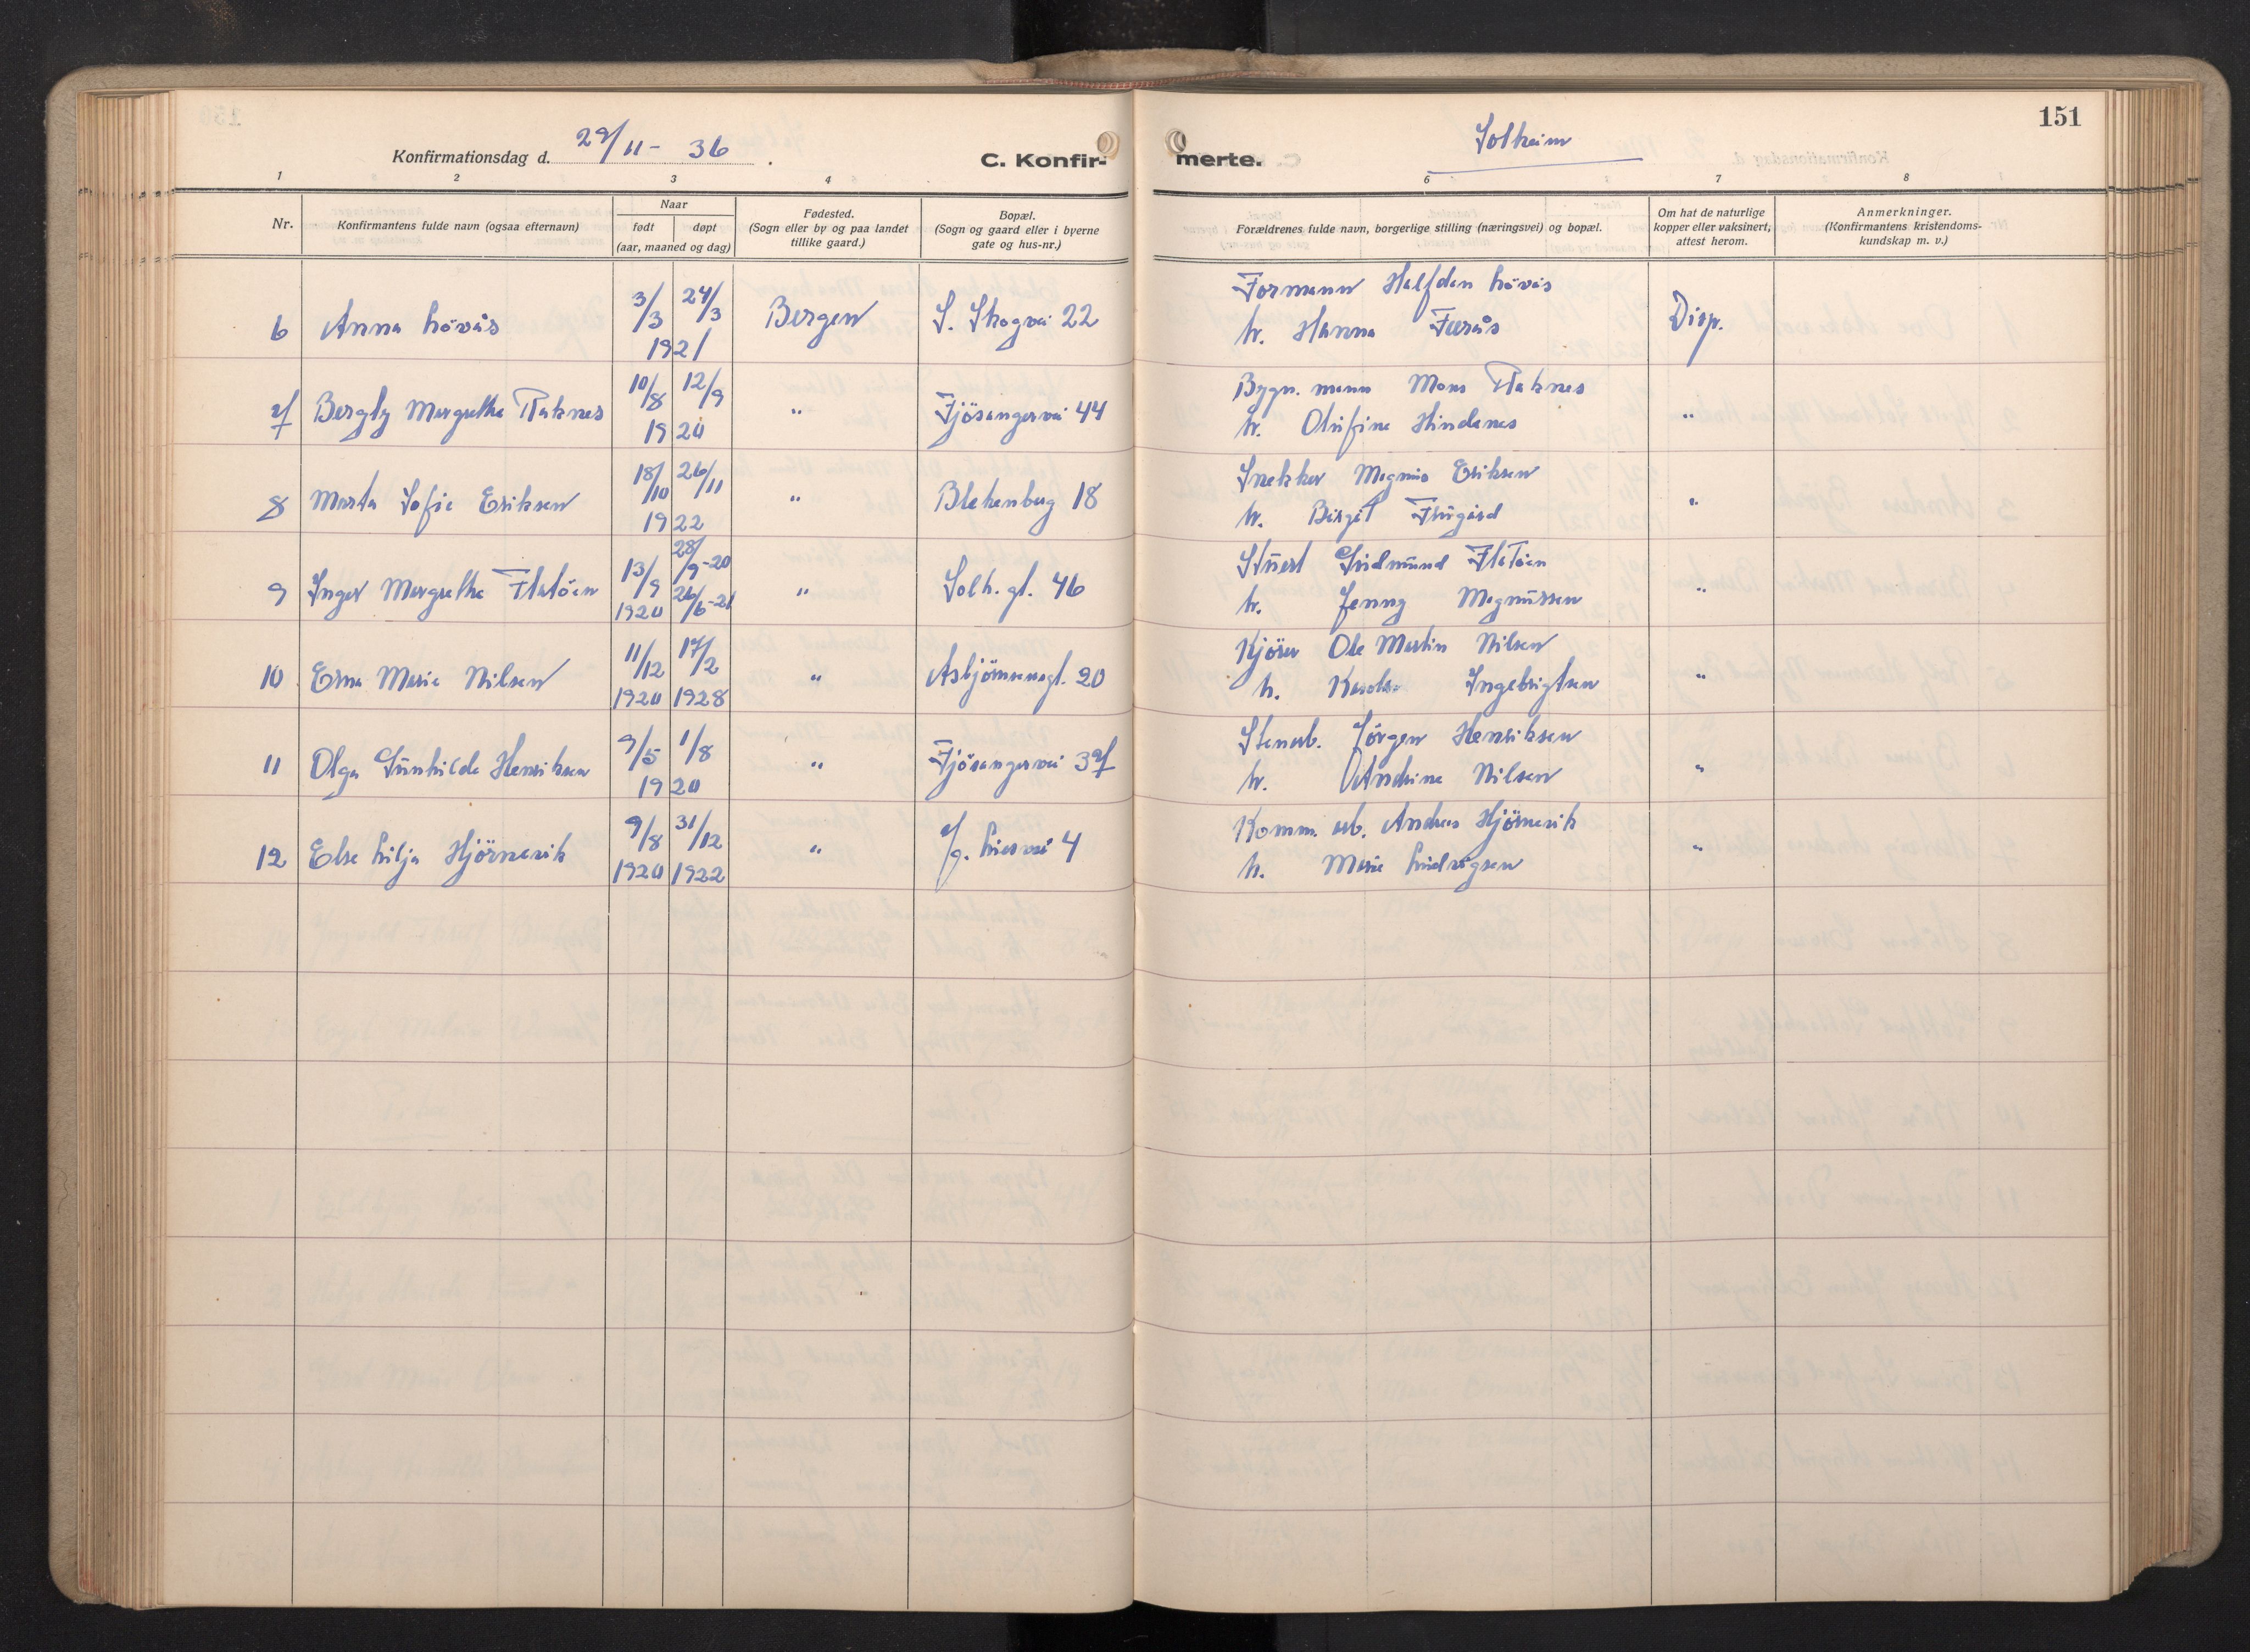 151
Konfirmationsdag d. 29/11 - 36. C. Konfirmerte. Solheim
1 2 3 4 6 7 8
Nr. Konfirmantens fulde navn (ogsaa efternavn) Naar født døpt (aar, maaned og dag) Fødested. (Sogn eller by og paa landet tillike gaard.) Bopæl. (Sogn og gaard eller i byerne gate og hus-nr.) Forældrenes fulde navn, borgerlige stilling (næringsvei) og bopæl. Om hat de naturlige kopper eller vaksinert, attest herom. Anmerkninger. (Konfirmantens kristendomskundskap m. v.)
6 Anna Lövås 3/3 24/3 1921 Bergen S. Skogvei 22 Formann Halfdan Lövås Disp.
h. Hanna Furås
7 Bergly Margrethe Raknes 10/8 12/9 1920 " Fjösangervei 44 Bygn. mann Mons Raknes "
h. Olufine Hindenes
8 Marta Sofie Eriksen 18/10 26/11 1922 " Blekenberg 18 Snekker Magnus Eriksen "
h. Birgit
9 Inger Margrethe Flatöen 13/9 1920 28/9-20 26/6-21 " Solh. gt. 46 Stuert Gudmund Flatöen "
h. Jenny Magnussen
10 Erna Marie Nilsen 11/12 1920 17/2 1928 " Asbjörnsensgt. 20 Kjörer Ole Martin Nilsen "
h. Ingebrigtsen
11 Olga Gunhilde Henriksen 9/5 1/8 1920 " Fjösangervei 37 Stenarb. Jørgen Henriksen "
h. Andrine Nilsen
12 Else Lilja Hjörnevik 9/8 1920 31/12 1922 " 4 Komm. arb. Andreas Hjörnevik "
h. Marie Ludvigsen